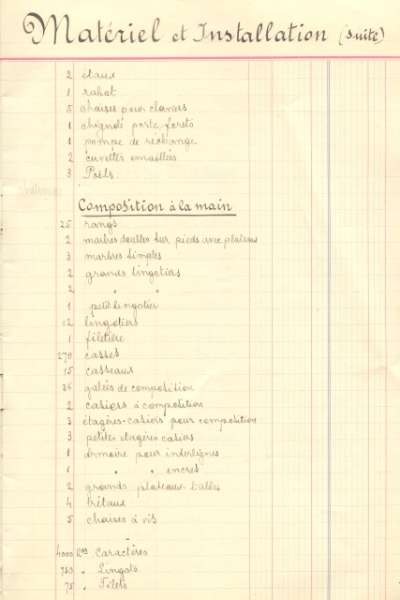 Matériel et Installation (suite)
2 étaux
1 rabot
5 chaises pour claviers
1 chignole porte forets
1 pompe de rechange
2 cuvettes emaillées
3 Poëls
Composition à la main
25 rangs
2 marbres doubles sur pieds avec plateau
3 marbres simples
2 grands lingotiers
2 " "
1 petit lingotier
12 lingotiers
1 filetière
270 casses
15 casseaux
36 galées de composition
2 casiers à composition
3 étagères-casiers pour composition
3 petites étagères casiers
1 armoire pour interlignes
1 " " encres
2 grands plateaux
4 trétaux
5 chaises à vis
4000 Kos Caractères
753 " Lingots
75 " Filets